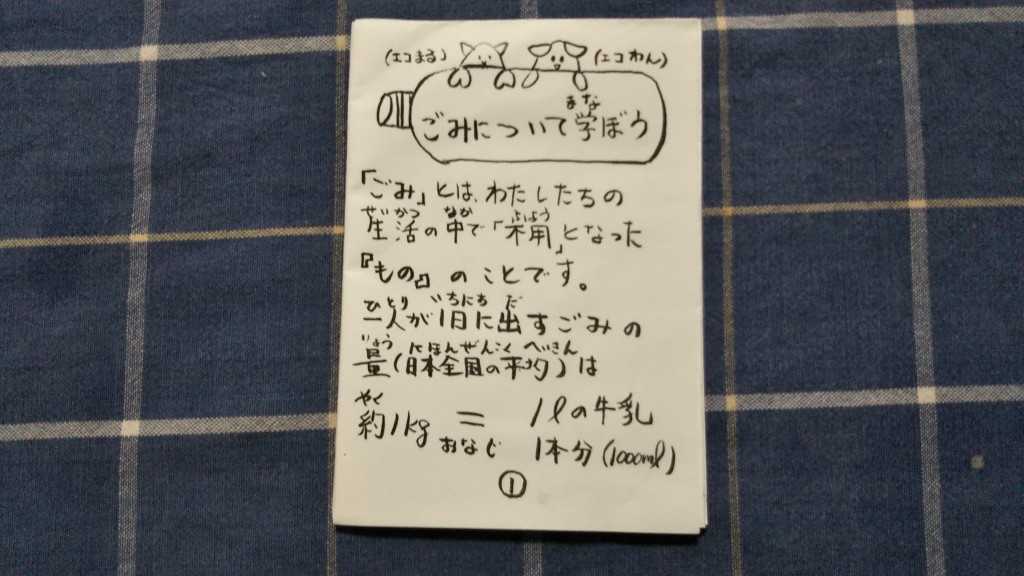 (エコまる) (エコわん)
まな
ごみについて学ぼう
「ごみ」とは、わたしたちの
せいかつ なか ふよう
生活の中で「不用」となった
『もの』のことです。
ひとり いちにち だ
一人が1日に出すごみの
りょう にほんぜんこく へいきん
量(日本全国の平均)は
やく
約1kg = 1lの牛乳
おなじ 1本分(1000ml)
①